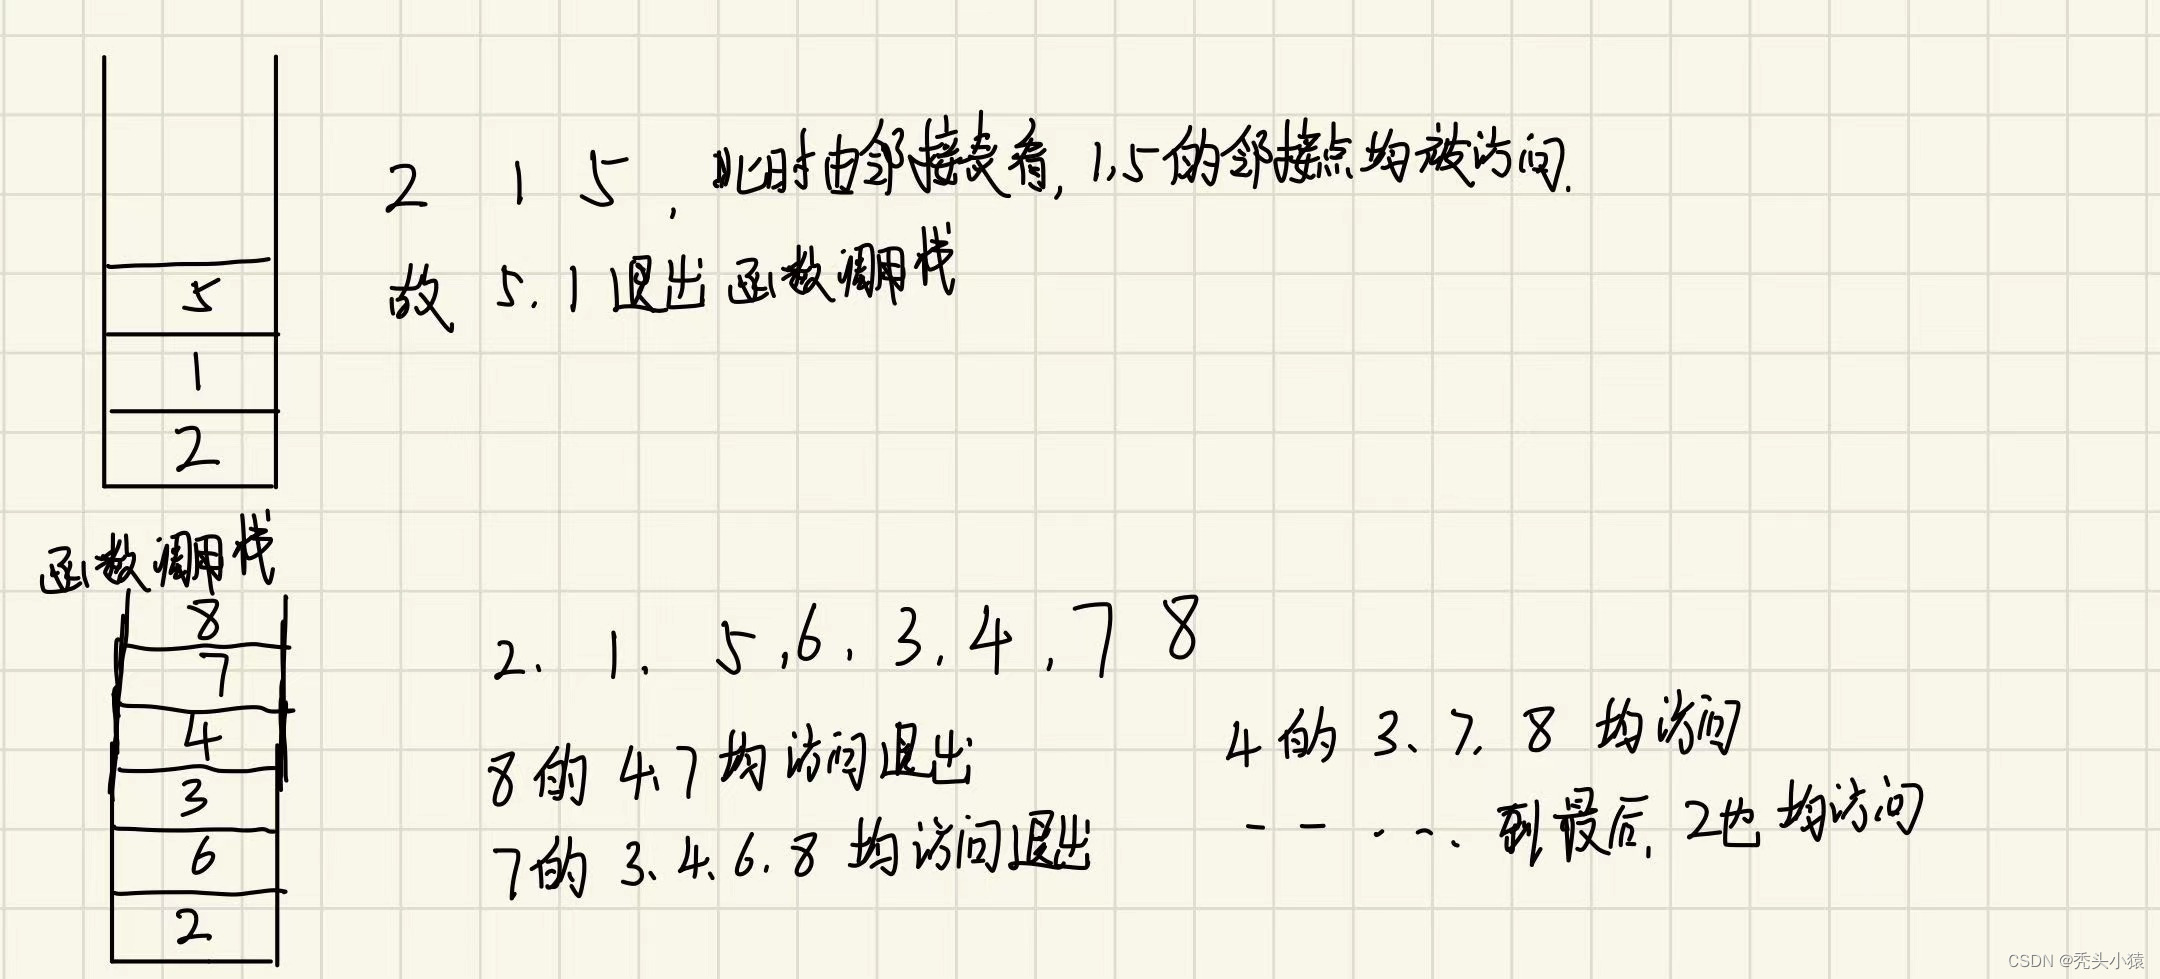 2 1 5, 此时由邻接表看, 1,5的邻接点均被访问.
故 5.1退出函数调用栈
5
1
2
函数调用栈
8
7
4
3
6
2
2. 1. 5,6. 3. 4, 7 8
8的 4、7 均访问退出
7的 3、4、6、8 均访问退出
4的 3、7、8 均访问
-- -- · ·· 到最后, 2也均访问
CSDN @秃头小猿